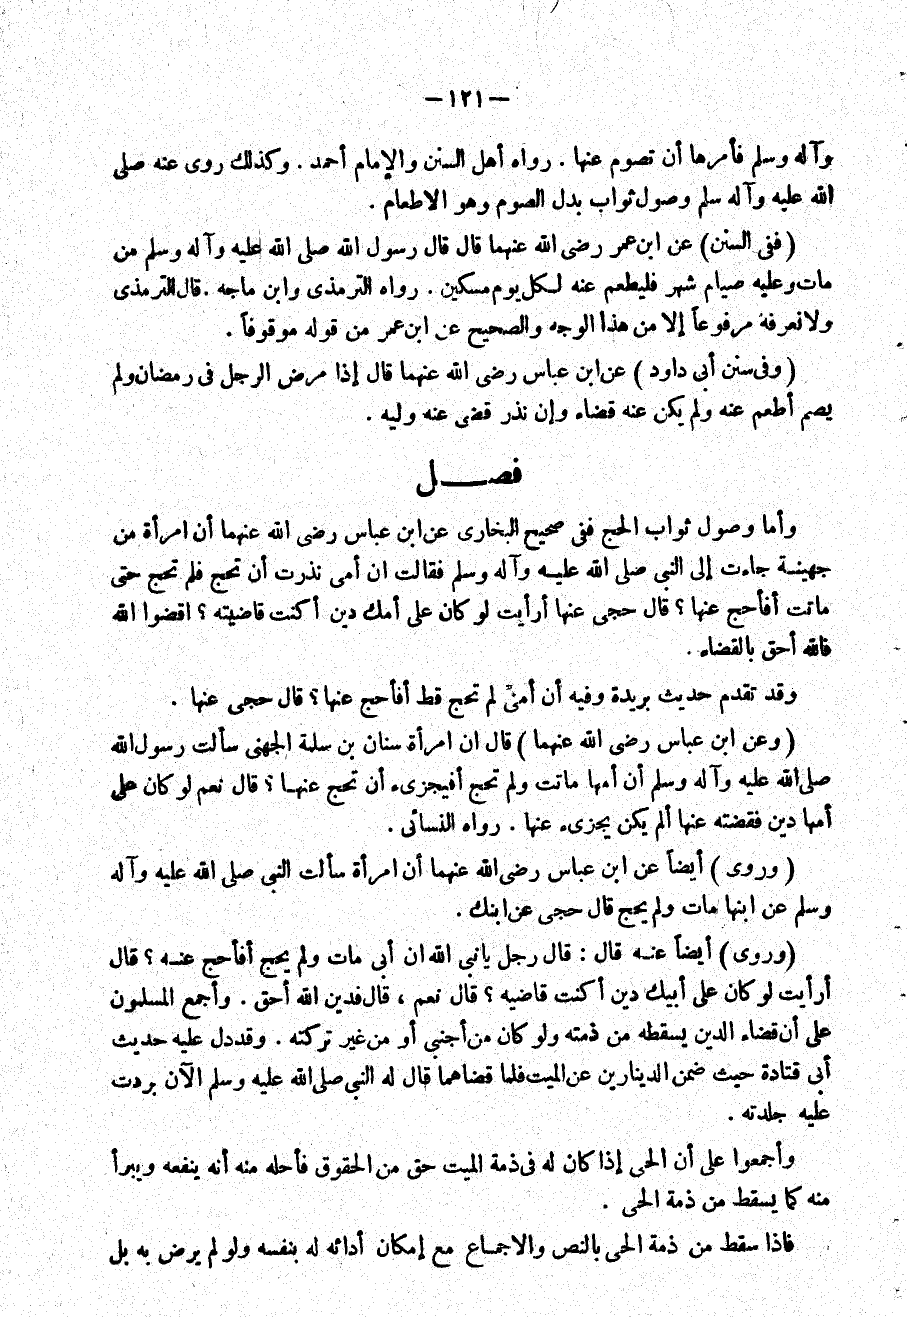 — ١٢١ —
وآله وسلم فأمرها أن تصوم عنها . رواه أهل السنن والإمام أحمد . وكذلك روى عنه صلى
الله عليه وآله سلم وصول ثواب بدل الصوم وهو الاطعام .
( ففى السنن ) عن ابن عمر رضى الله عنهما قال قال رسول الله صلى الله عليه وآله وسلم من
مات وعليه صيام شهر فليطعم عنه لكل يوم مسكين . رواه الترمذى وابن ماجه . قال الترمذى
ولا نعرفه مرفوعاً إلا من هذا الوجه والصحيح عن ابن عمر من قوله موقوفاً .
( وفى سنن أبى داود ) عن ابن عباس رضى الله عنهما قال إذا مرض الرجل فى رمضان ولم
يصم أطعم عنه ولم يكن عنه قضاء وإن نذر قضى عنه وليه .
فصل
وأما وصول ثواب الحج ففى صحيح البخارى عن ابن عباس رضى الله عنهما أن امرأة من
جهينة جاءت إلى النبى صلى الله عليه وآله وسلم فقالت ان أمى نذرت أن تحج فلم تحج حتى
ماتت أفأحج عنها ؟ قال حجى عنها أرأيت لو كان على أمك دين أكنت قاضيته ؟ اقضوا الله
فالله أحق بالقضاء .
وقد تقدم حديث بريدة وفيه أن أمى لم تحج قط أفأحج عنها ؟ قال حجى عنها .
( وعن ابن عباس رضى الله عنهما ) قال ان امرأة سنان بن سلمة الجهنى سألت رسول الله
صلى الله عليه وآله وسلم أن أمها ماتت ولم تحج أفيجزىء أن تحج عنها ؟ قال نعم لو كان على
أمها دين فقضته عنها ألم يكن يجزىء عنها . رواه النسائى .
( وروى ) أيضاً عن ابن عباس رضى الله عنهما أن امرأة سألت النبى صلى الله عليه وآله
وسلم عن ابنها مات ولم يحج قال حجى عن ابنك .
( وروى ) أيضاً عنه قال : قال رجل يانبى الله ان أبى مات ولم يحج أفأحج عنه ؟ قال
أرأيت لو كان على أبيك دين أكنت قاضيه ؟ قال نعم ، قال فدين الله أحق . وأجمع المسلمون
على أن قضاء الدين يسقطه من ذمته ولو كان من أجنبى أو من غير تركته . وقد دل عليه حديث
أبى قتادة حيث ضمن الدينارين عن الميت فلما قضاهما قال له النبى صلى الله عليه وسلم الآن بردت
عليه جلدته .
وأجمعوا على أن الحى إذا كان له فى ذمة الميت حق من الحقوق فأحله منه أنه ينفعه ويبرأ
منه كما يسقط من ذمة الحى .
فاذا سقط من ذمة الحى بالنص والاجماع مع إمكان أدائه له بنفسه ولو لم يرض به بل